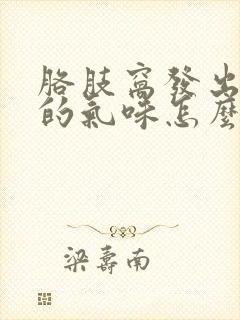 胳肢窩發出
的氣味怎麼
梁壽南